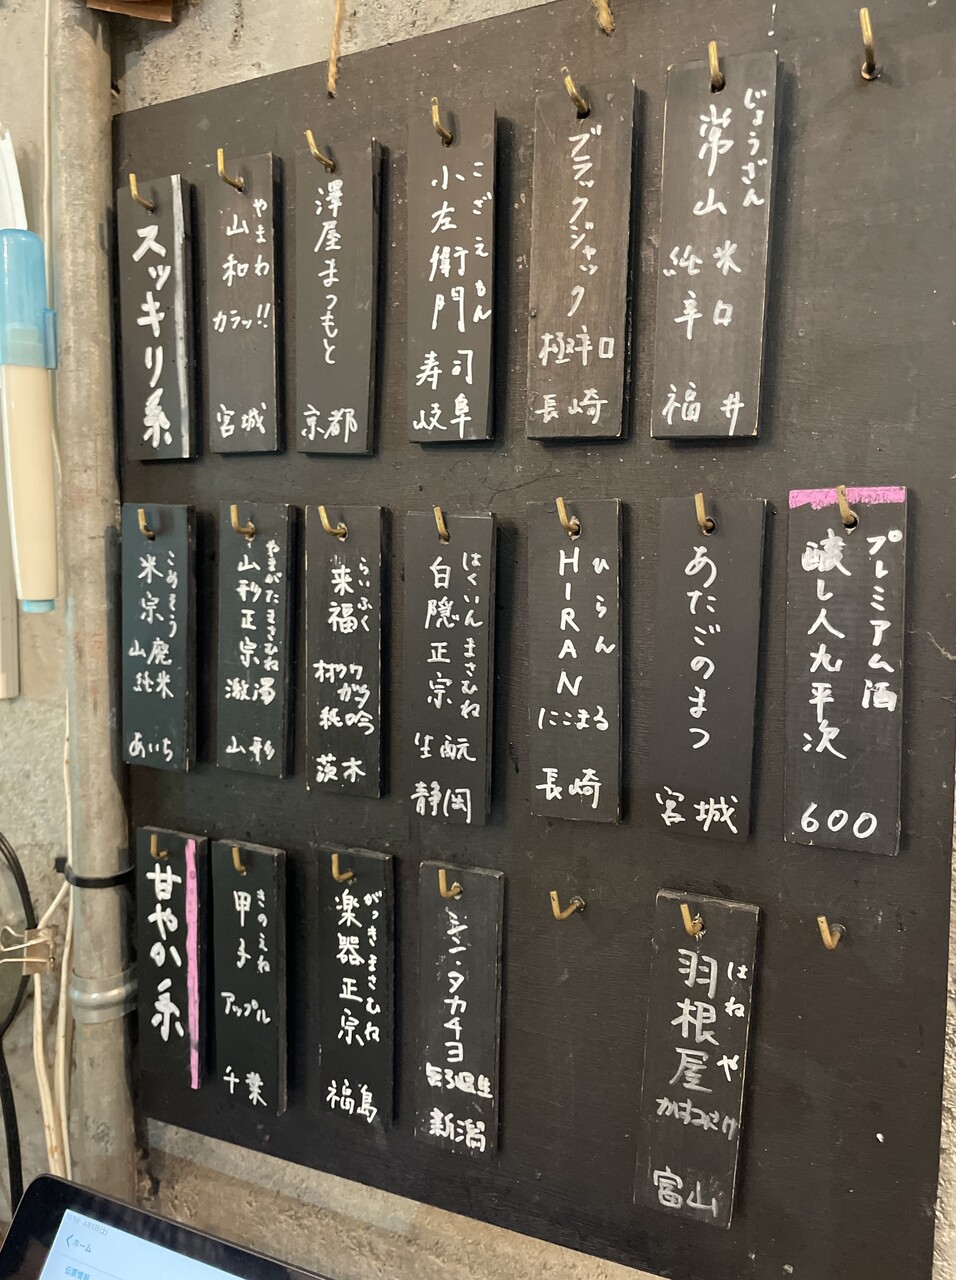 スッキリ系
やまわ
山和
カラッ!!
宮城
澤屋まつもと
京都
こざえもん
小左衛門
寿司
岐阜
ブラックジャック
極辛口
長崎
じょうざん
常山
純米
辛口
福井
こめそう
米宗
山廃
純米
あいち
やまがたまさむね
山形正宗
激濁
山形
らいふく
来福
純吟
茨木
はくいんまさむね
白隠正宗
生酛
静岡
ひらん
HIRAN
にこまる
長崎
あたごのまつ
宮城
プレミアム酒
醸し人九平次
600
甘やか系
きのえね
甲子
アップル
千葉
がっきまさむね
楽器正宗
福島
シン・タカチヨ
無ろ過生
新潟
はねや
羽根屋
かすみざけ
富山
8月3日(土)
ホーム
伝票情報